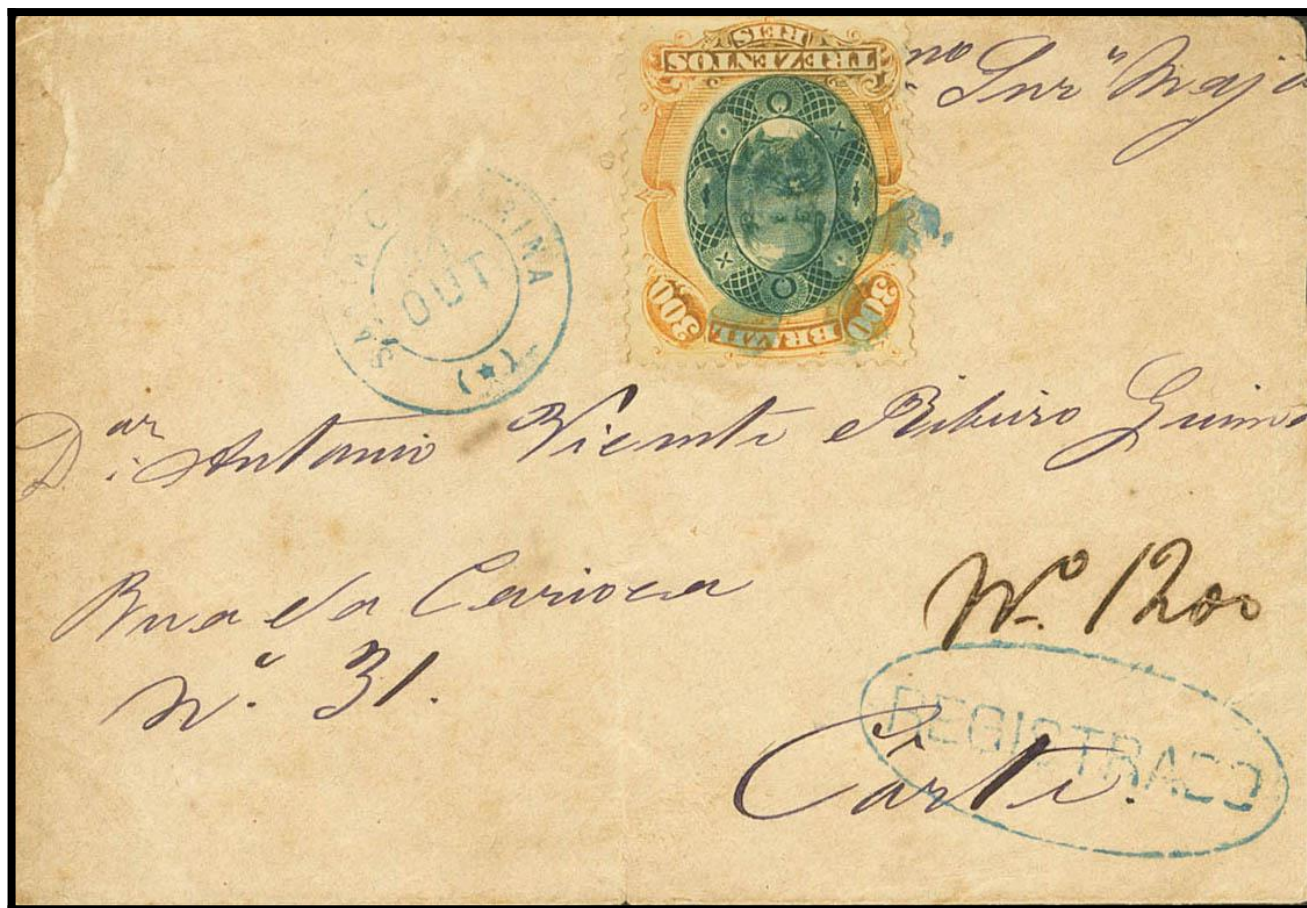 TREZENTOS
REIS
300 BRAZIL 300
Snr Majo
SANTA CATHARINA
OUT
Antonio Vicente Ribeiro Guima
Rua da Carioca
Nº 31.
Nº 1200
REGISTRADO
Côrte.